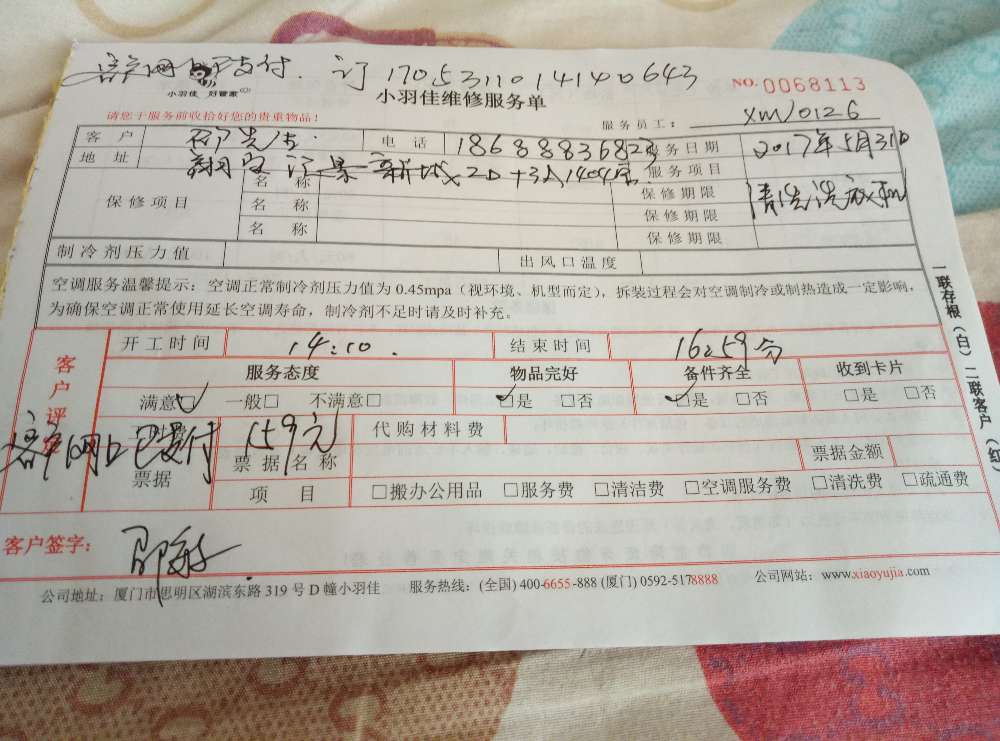 客户网上已支付. 订 17053110141400643
小羽佳 好管家
NO.0068113
小羽佳维修服务单
请您于服务前收拾好您的贵重物品!
服务员工: XM/0126
客户 先生. 电话 18688836828 服务日期 2017年5月31日
地址 翔安 汇景新城2D 1404室 服务项目 清洗洗衣机
保修项目 名称 保修期限
名称 保修期限
名称 保修期限
制冷剂压力值 出风口温度
空调服务温馨提示:空调正常制冷剂压力值为 0.45mpa(视环境、机型而定),拆装过程会对空调制冷或制热造成一定影响,
为确保空调正常使用延长空调寿命,制冷剂不足时请及时补充。
客户评
开工时间 14:10. 结束时间 16:59分
服务态度 物品完好 备件齐全 收到卡片
满意□ 一般□ 不满意□ □是 □否 □是 □否 □是 □否
客户网上已支付 159元 代购材料费
票据 票据名称 票据金额
项目 □搬办公用品 □服务费 □清洁费 □空调服务费 □清洗费 □疏通费
客户签字:
公司地址:厦门市思明区湖滨东路 319 号 D 幢小羽佳 服务热线:(全国) 400-6655-888 (厦门) 0592-5178888 公司网站:www.xiaoyujia.com
一联存根(白)二联客户(红)